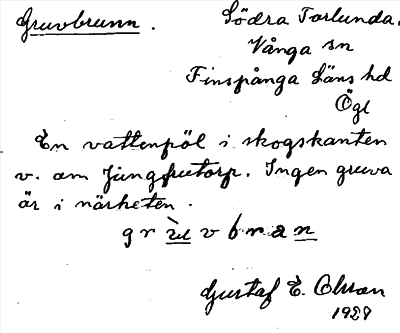 Gruvbrunn.
Södra Torlunda.
Vånga sn
Finspånga Läns hd
Ögl
En vattenpöl i skogskanten
v. om Jungfrutorp. Ingen gruva
är i närheten.
grùvbran
Gustaf E. Olsson
1929